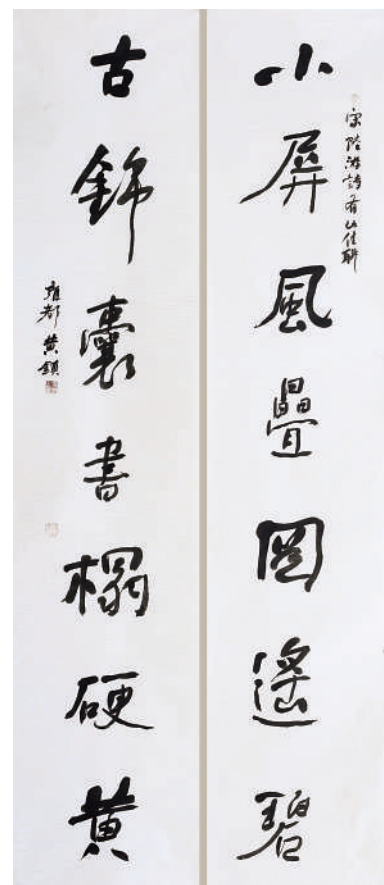 小屏風疊圖遙碧
宋陸游詩有此佳聯
古錦囊書榻硬黄
雍都黄鎮